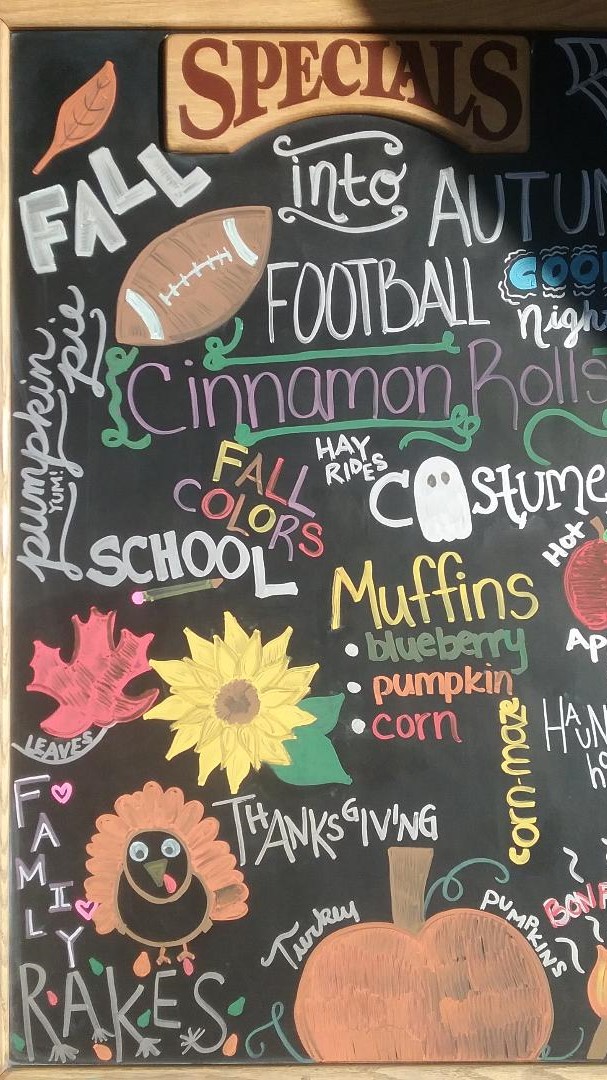 SPECIALS
FALL into AUTUM
FOOTBALL
COO
nigh
pumpkin pie
YUM!
Cinnamon Rolls
HAY RIDES
FALL COLORS
COSTUME
SCHOOL
Hot
Ap
Muffins
• blueberry
• pumpkin
• corn
corn-maze
HAUN
ho
LEAVES
FAMILY
THANKSGIVING
Turkey
PUMPKINS
BONF
RAKES